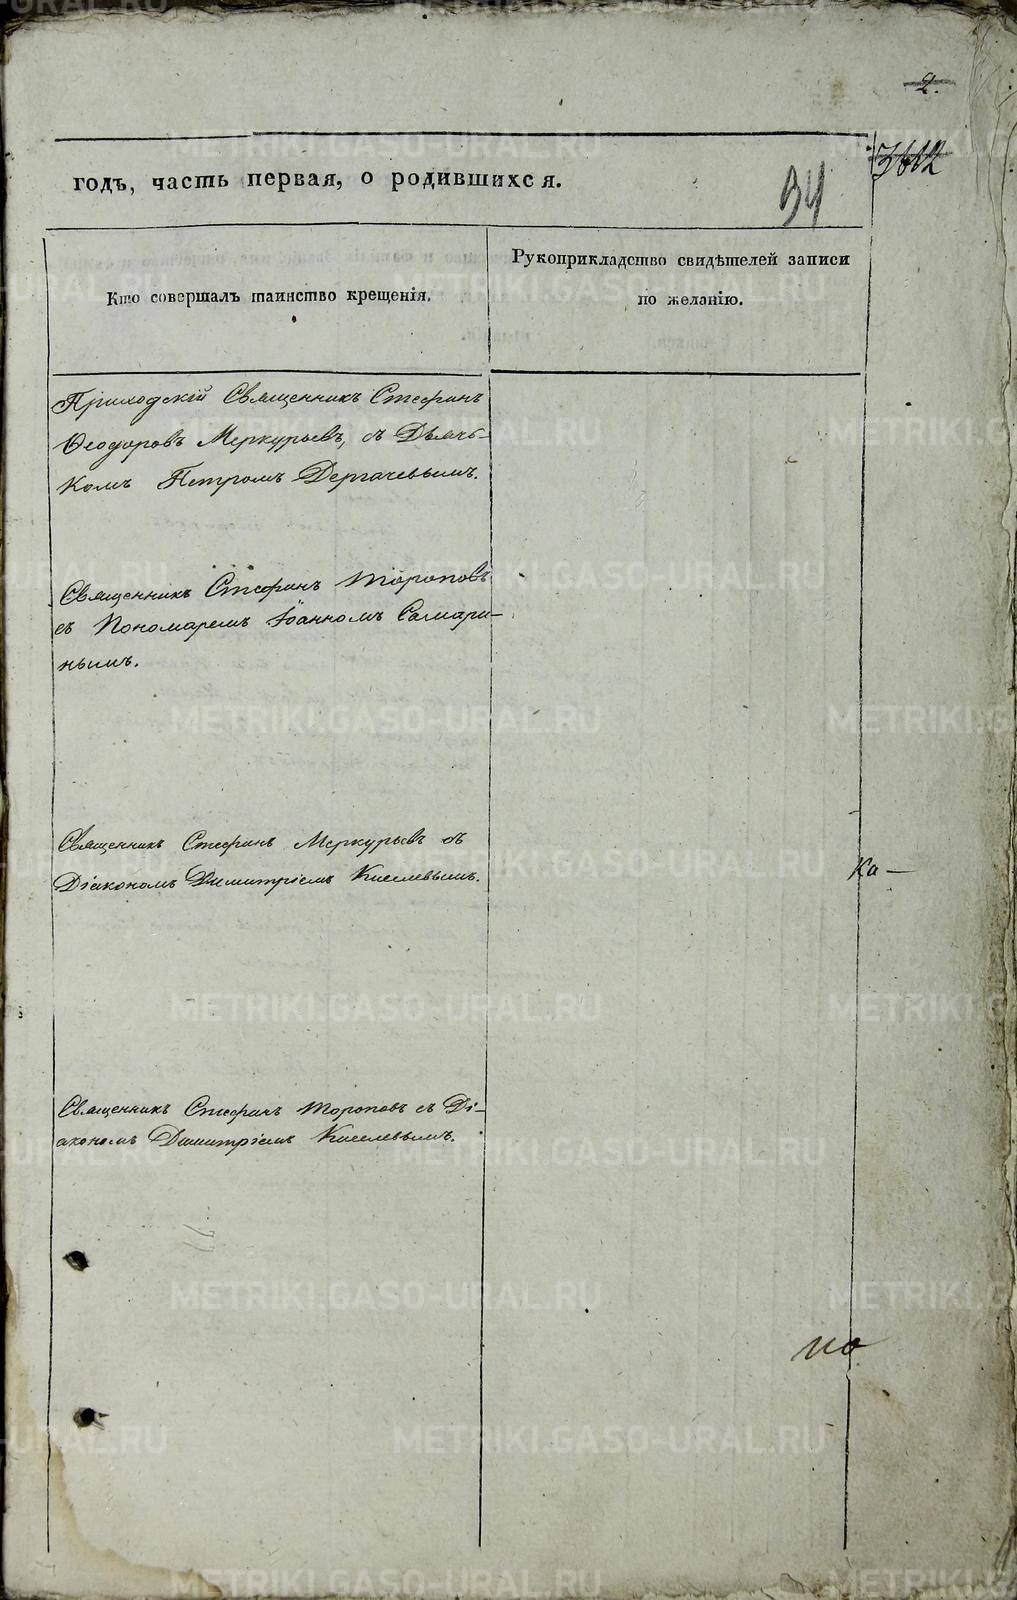 2.
3612
годъ, часть первая, о родившихся.
94
Кто совершалъ таинство крещенія.
Рукоприкладство свидѣтелей записи
по желанію.
Приходскій Священникъ Стефанъ
Ѳеодоровъ Меркурьевъ, съ Дьячь-
комъ Петромъ Дергачевымъ.
Священникъ Стефанъ Тороповъ
съ Пономаремъ Іоанномъ Самари-
нымъ.
Священникъ Стефанъ Меркурьевъ съ
Діакономъ Димитріемъ Киселевымъ.
Ка-
Священникъ Стефанъ Тороповъ съ Ді-
акономъ Димитріемъ Киселевымъ.
по
METRIKI.GASO-URAL.RU